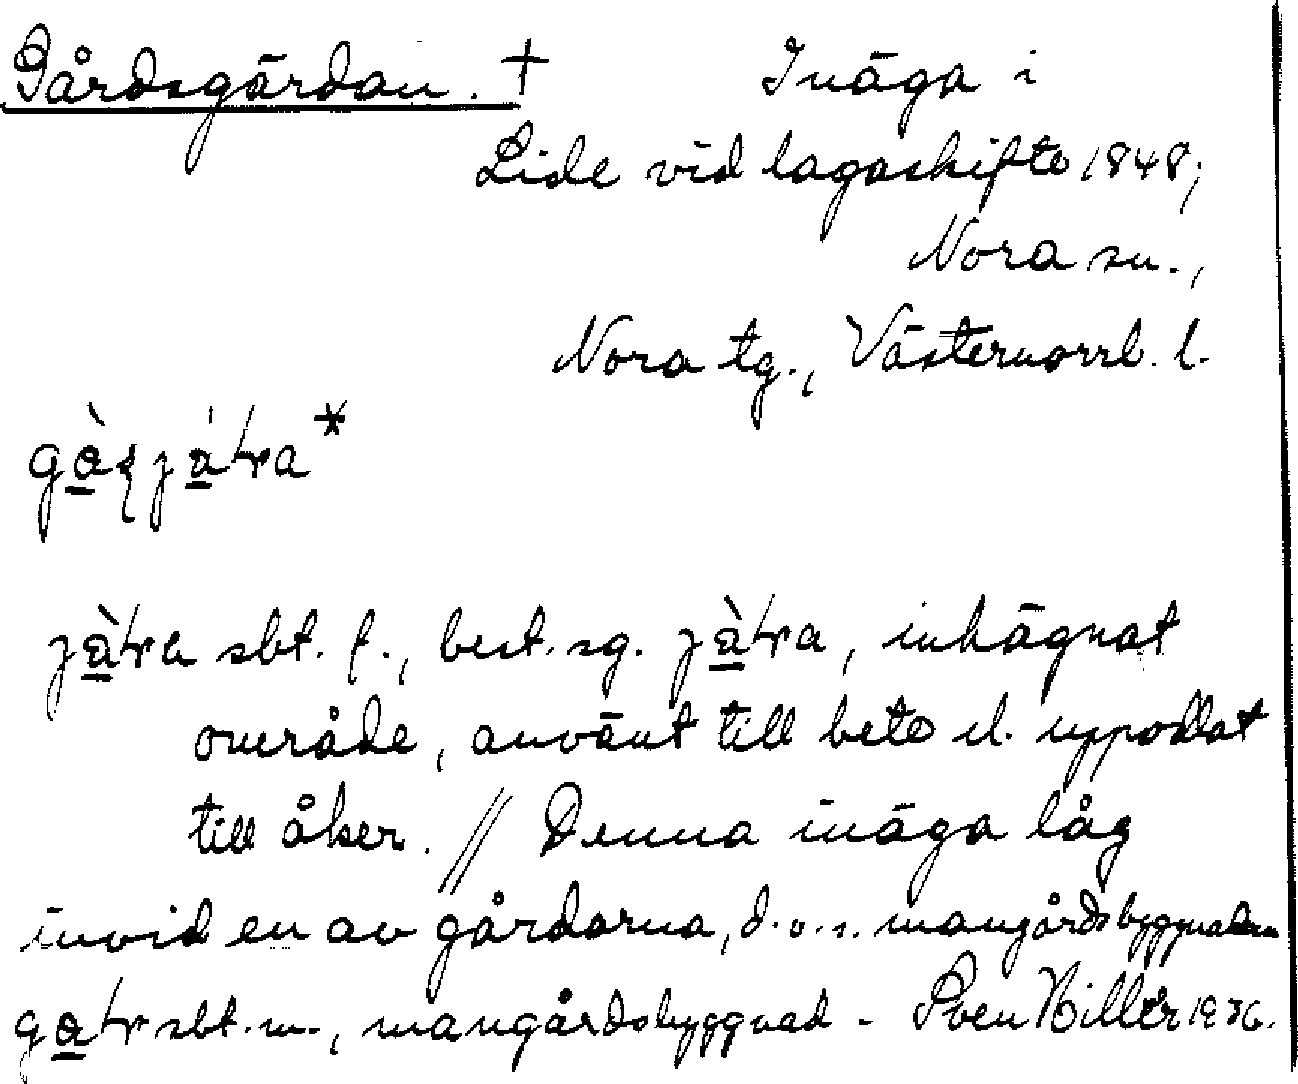 Gårdsgärdan. † Inäga i
Lide vid lagaskifte 1848;
Nora sn.,
Nora tg., Västernorrl. l.
jä̀ꞎra sbt. f., best. sg. jä̀ꞎra, inhägnat
område, använt till bete el. uppodlat
till åker. // Denna inäga låg
invid en av gårdarna, d.v.s. mangårdsbyggnaden
sbt. m., mangårdsbyggnad - Sven Hillér 1936.